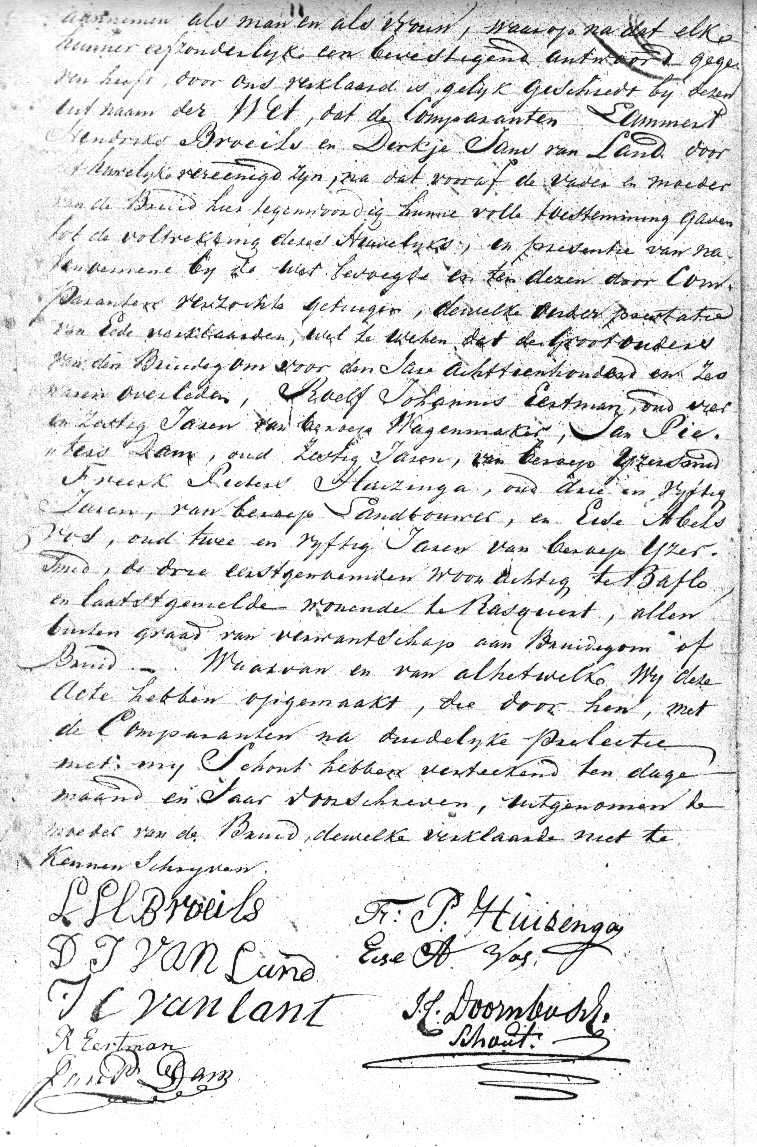 aannemen als man en als vrouw, waarop na dat elke
hunner afzonderlyk een bevestigend antwoord gege-
ven heeft, door ons verklaard is, gelyk geschiedt by dezen
uit naam der Wet, dat de Comparanten Lammert
Hendriks Broeils en Derkje Jans van Land door
het huwelyk vereenigd zyn, na dat vooraf de vader en moeder
van de Bruid hier tegenwoordig hunne volle toestemming gaven
tot de voltrekking dezes Huwelyks, en presentie van na-
tenoemene by de wet bevoegde en ten dezen door Com-
paranten verzochte getuigen, dewelke onder prestatie
van Eede verklaarden, wel te weten dat de Grootouders
van den Bruidegom voor den Jare achttienhonderd en zes
waren overleden, Roelf Johannes Eertman, oud vier
en Zestig Jaren van beroep Wagenmaker, Jan Pie-
ters Dam, oud Zestig Jaren, van beroep Yzersmid
Freerk Pieters Huizinga, oud drie en vyftig
Jaren, van beroep Landbouwer, en Eise Abels
Vos, oud twee en vyftig Jaren van beroep Yzer-
smid, de drie eerstgenoemden woonachtig te Baflo,
en laatstgemelde wonende te Rasquert, allen
buiten graad van verwantschap aan Bruidegom of
Bruid. Waarvan en van alhetwelke Wy deze
Acte hebben opgemaakt, die door hen, met
de Comparanten na duidelyke prelectie
met my Schout hebben verteekend ten dage
maand en Jaar voorschreven, uitgenomen de
moeder van de Bruid, dewelke verklaarde niet te
Kennen Schryven.
L H Broeils
Fr: P. Huizenga
D J van Land
Eise A Vos.
J C van Lant
H. Doornbosch.
Schout.
R Eertman
Jan P Dam